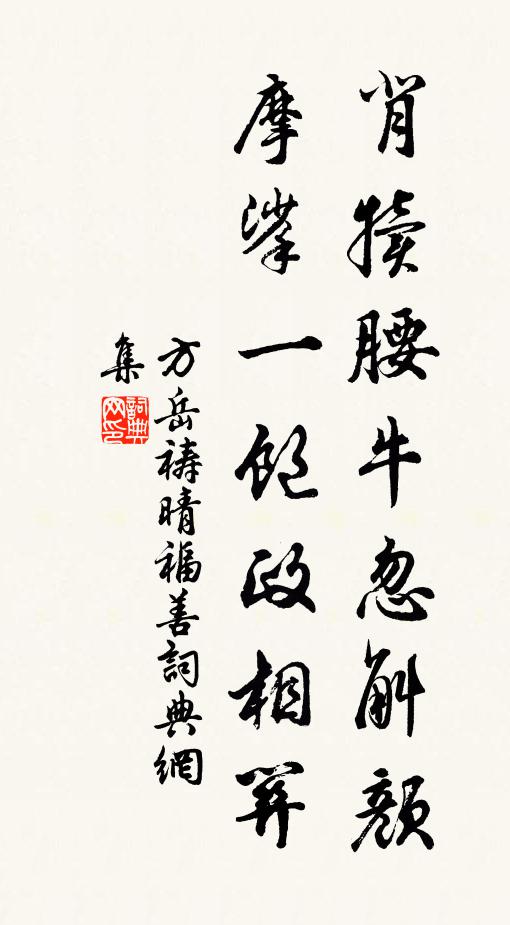 背犢腰牛忽解顏
摩挲一飽政相關
方岳禱晴福善詞典網
集
詞典
网印